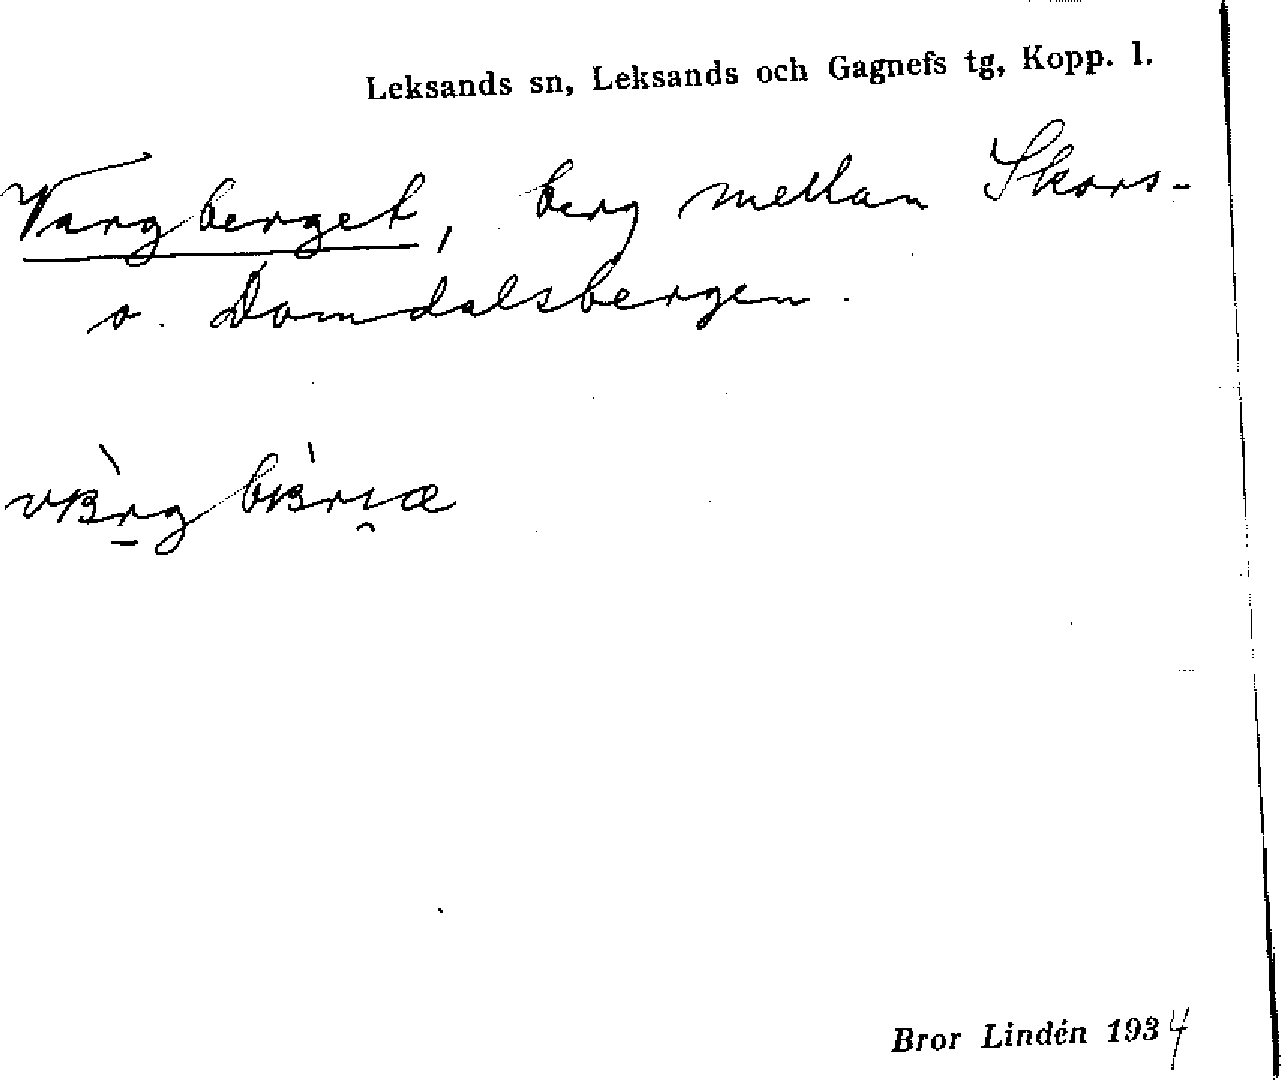 Leksands sn, Leksands och Gagnefs tg, Kopp. l.
Vargberget, berg mellan Skors-
o. Domdalsbergen.
Bror Lindén 1934